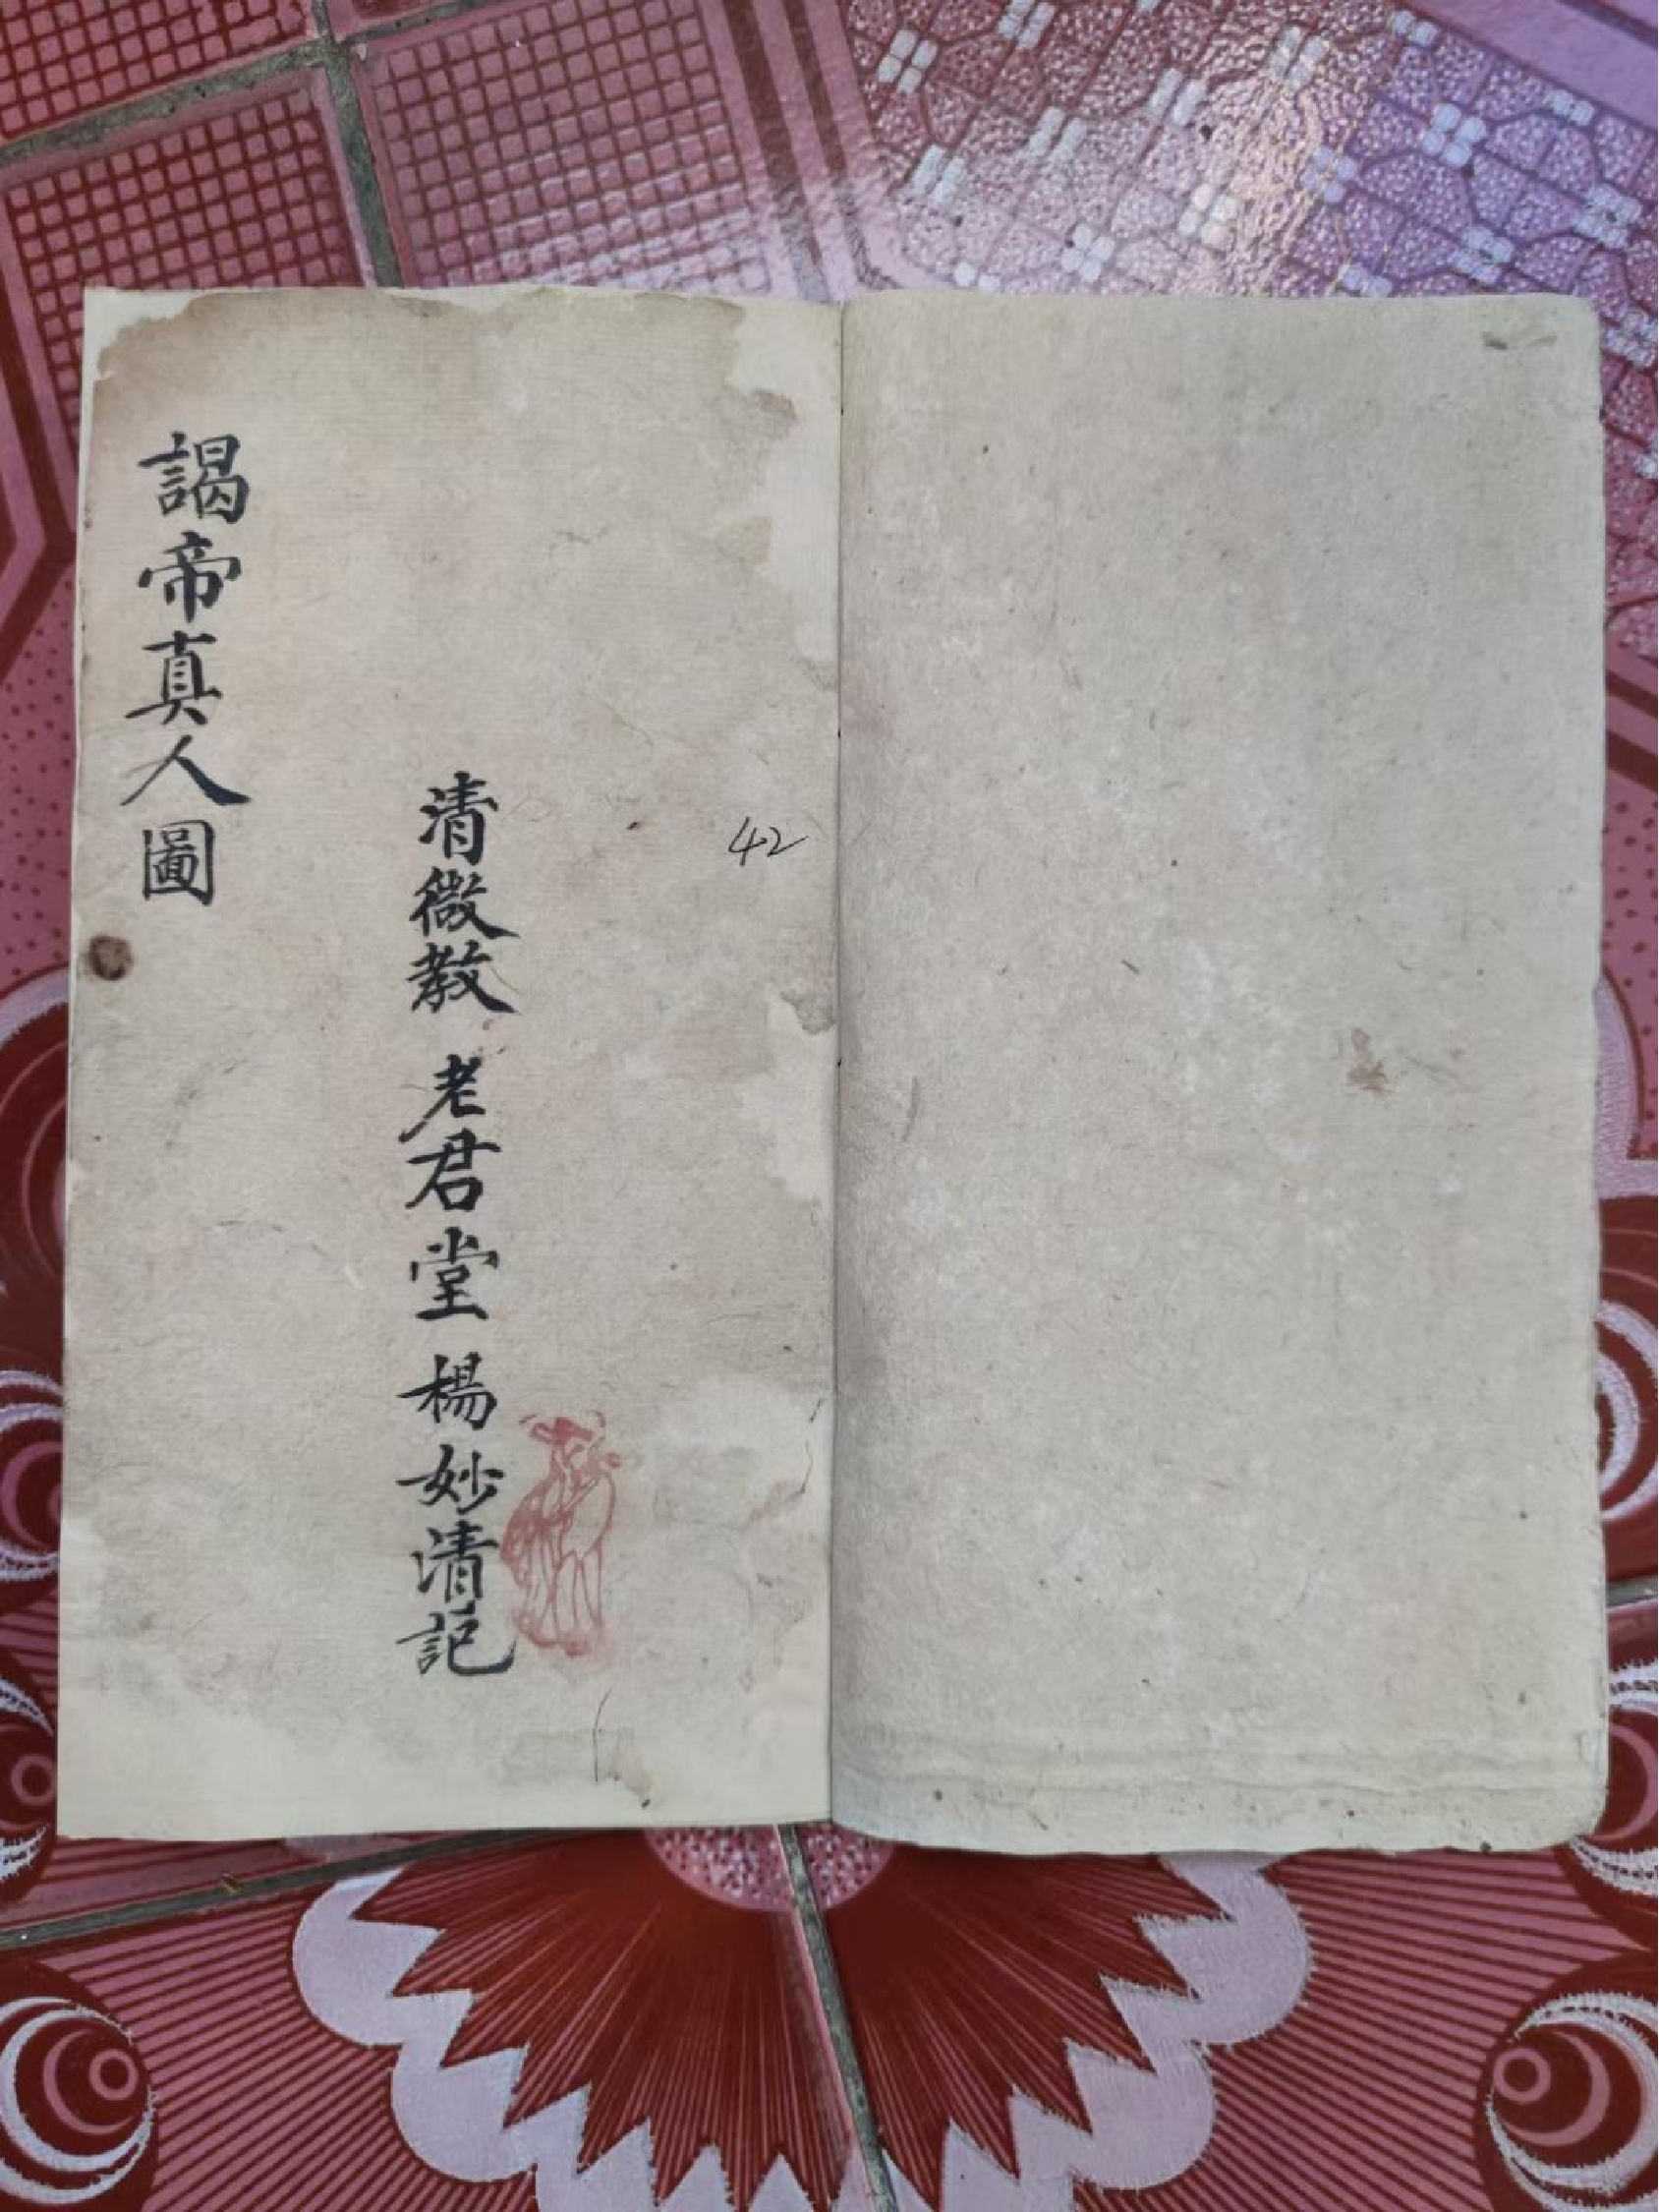 42
清微教 老君堂 楊妙清記
謁帝真人圖